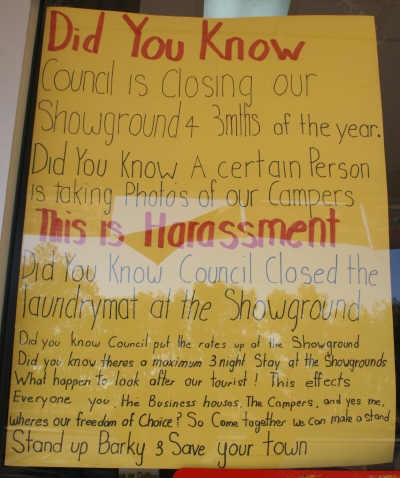 Did You Know
Council is Closing our
Showground 4 3mths of the year.
Did You Know A certain Person
is taking Photos of our Campers
This is Harassment
Did You Know Council Closed the
laundrymat at the Showground
Did you know Council put the rates up at the Showground
Did you know theres a maximum 3 night Stay at the Showgrounds
What happen to look after our tourist! This effects
Everyone you, the Business houses, The Campers, and yes me,
wheres our freedom of Choice? So Come together we can make a stand
Stand up Barky & Save your town